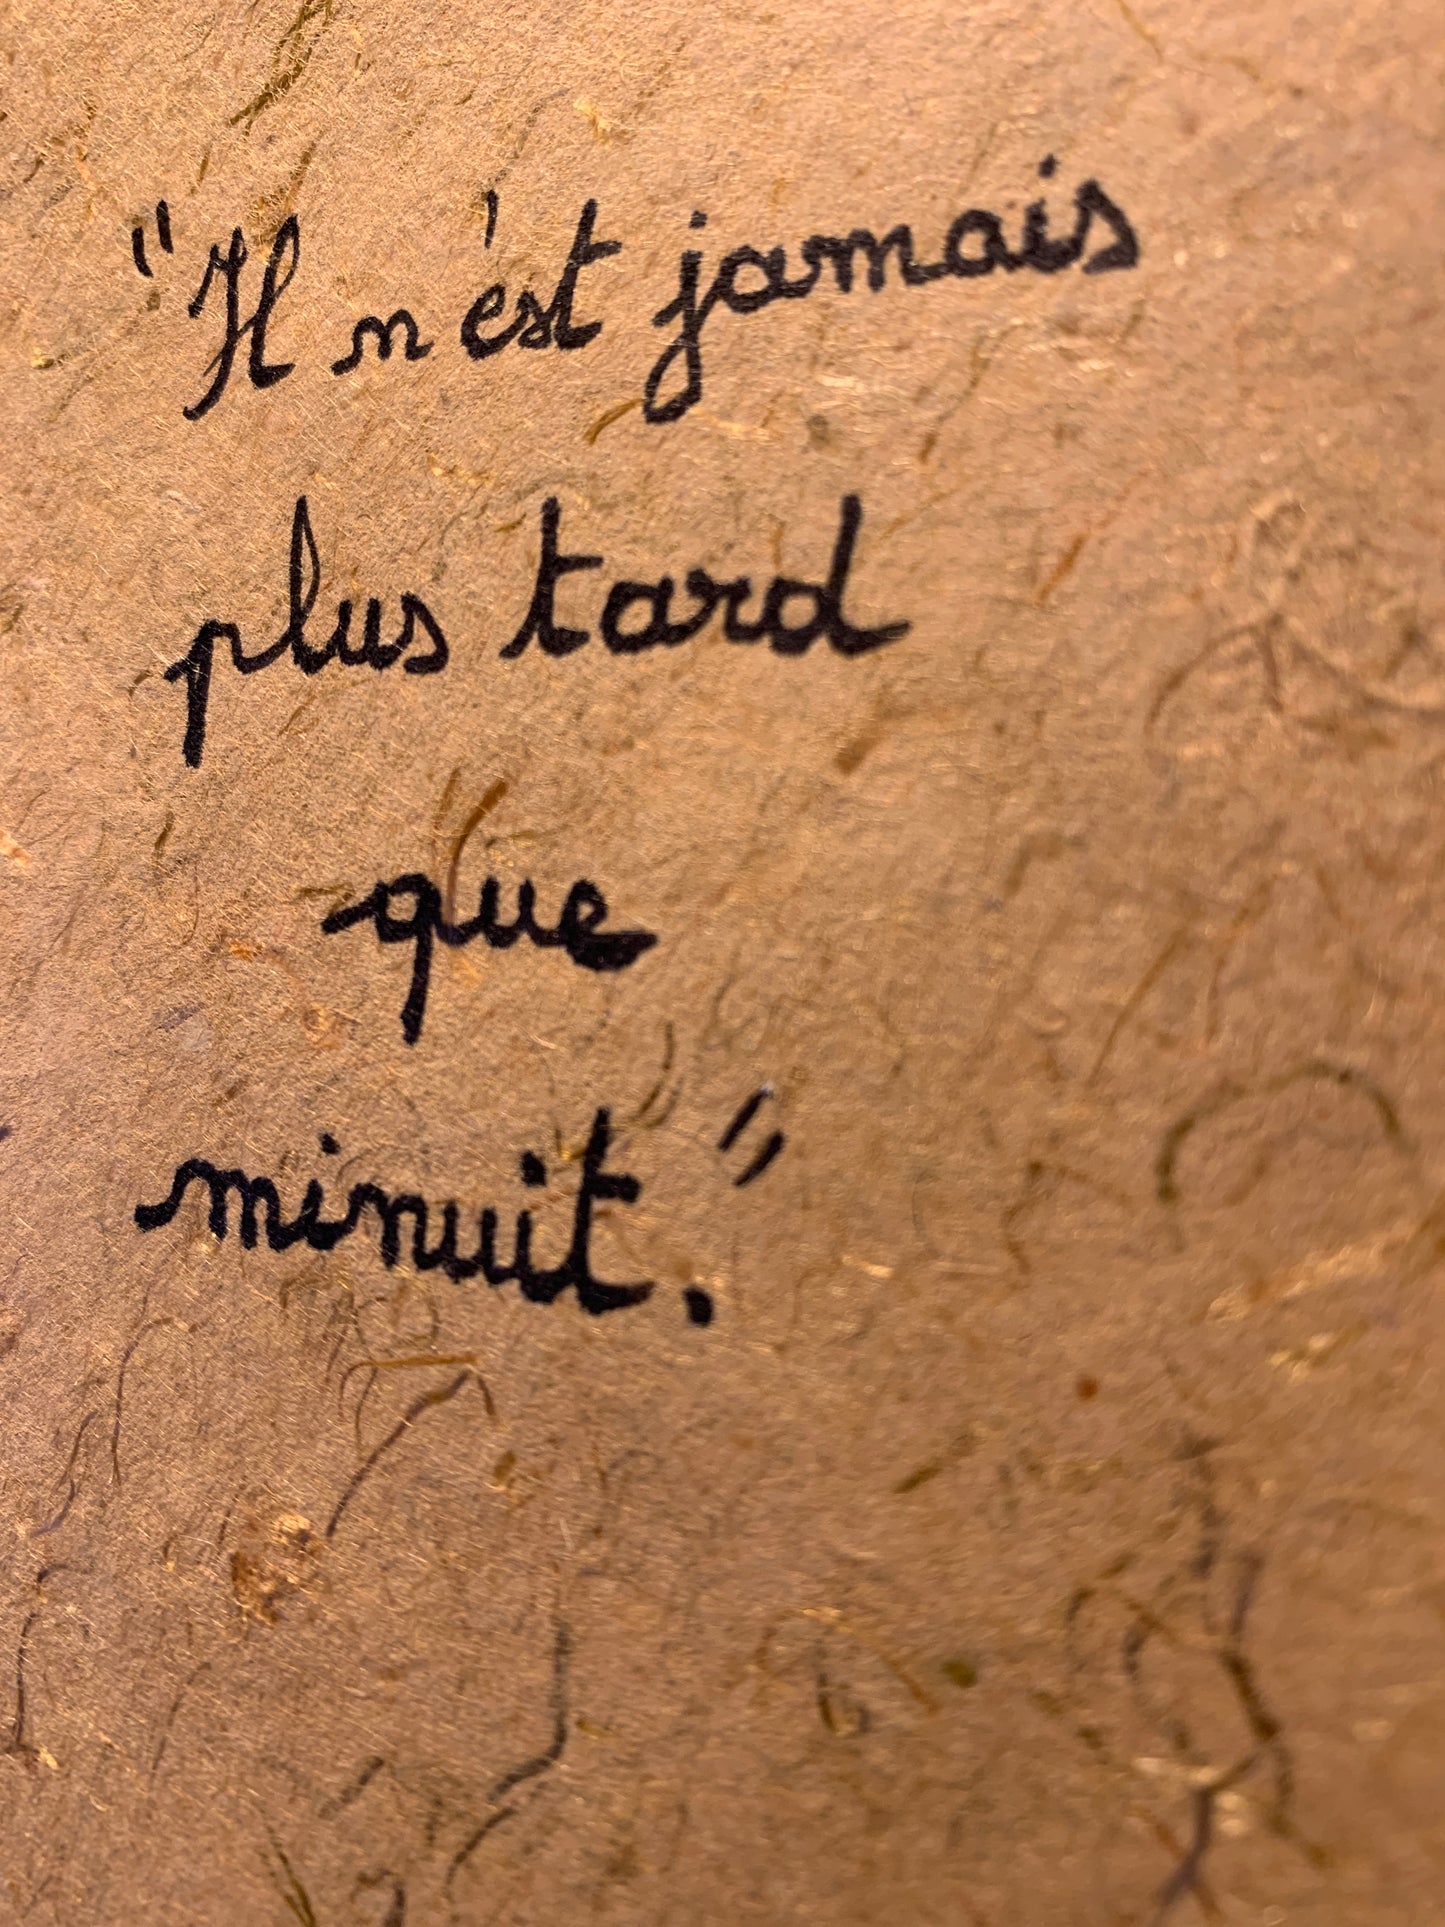 "Il n'est jamais
plus tard
que
minuit."